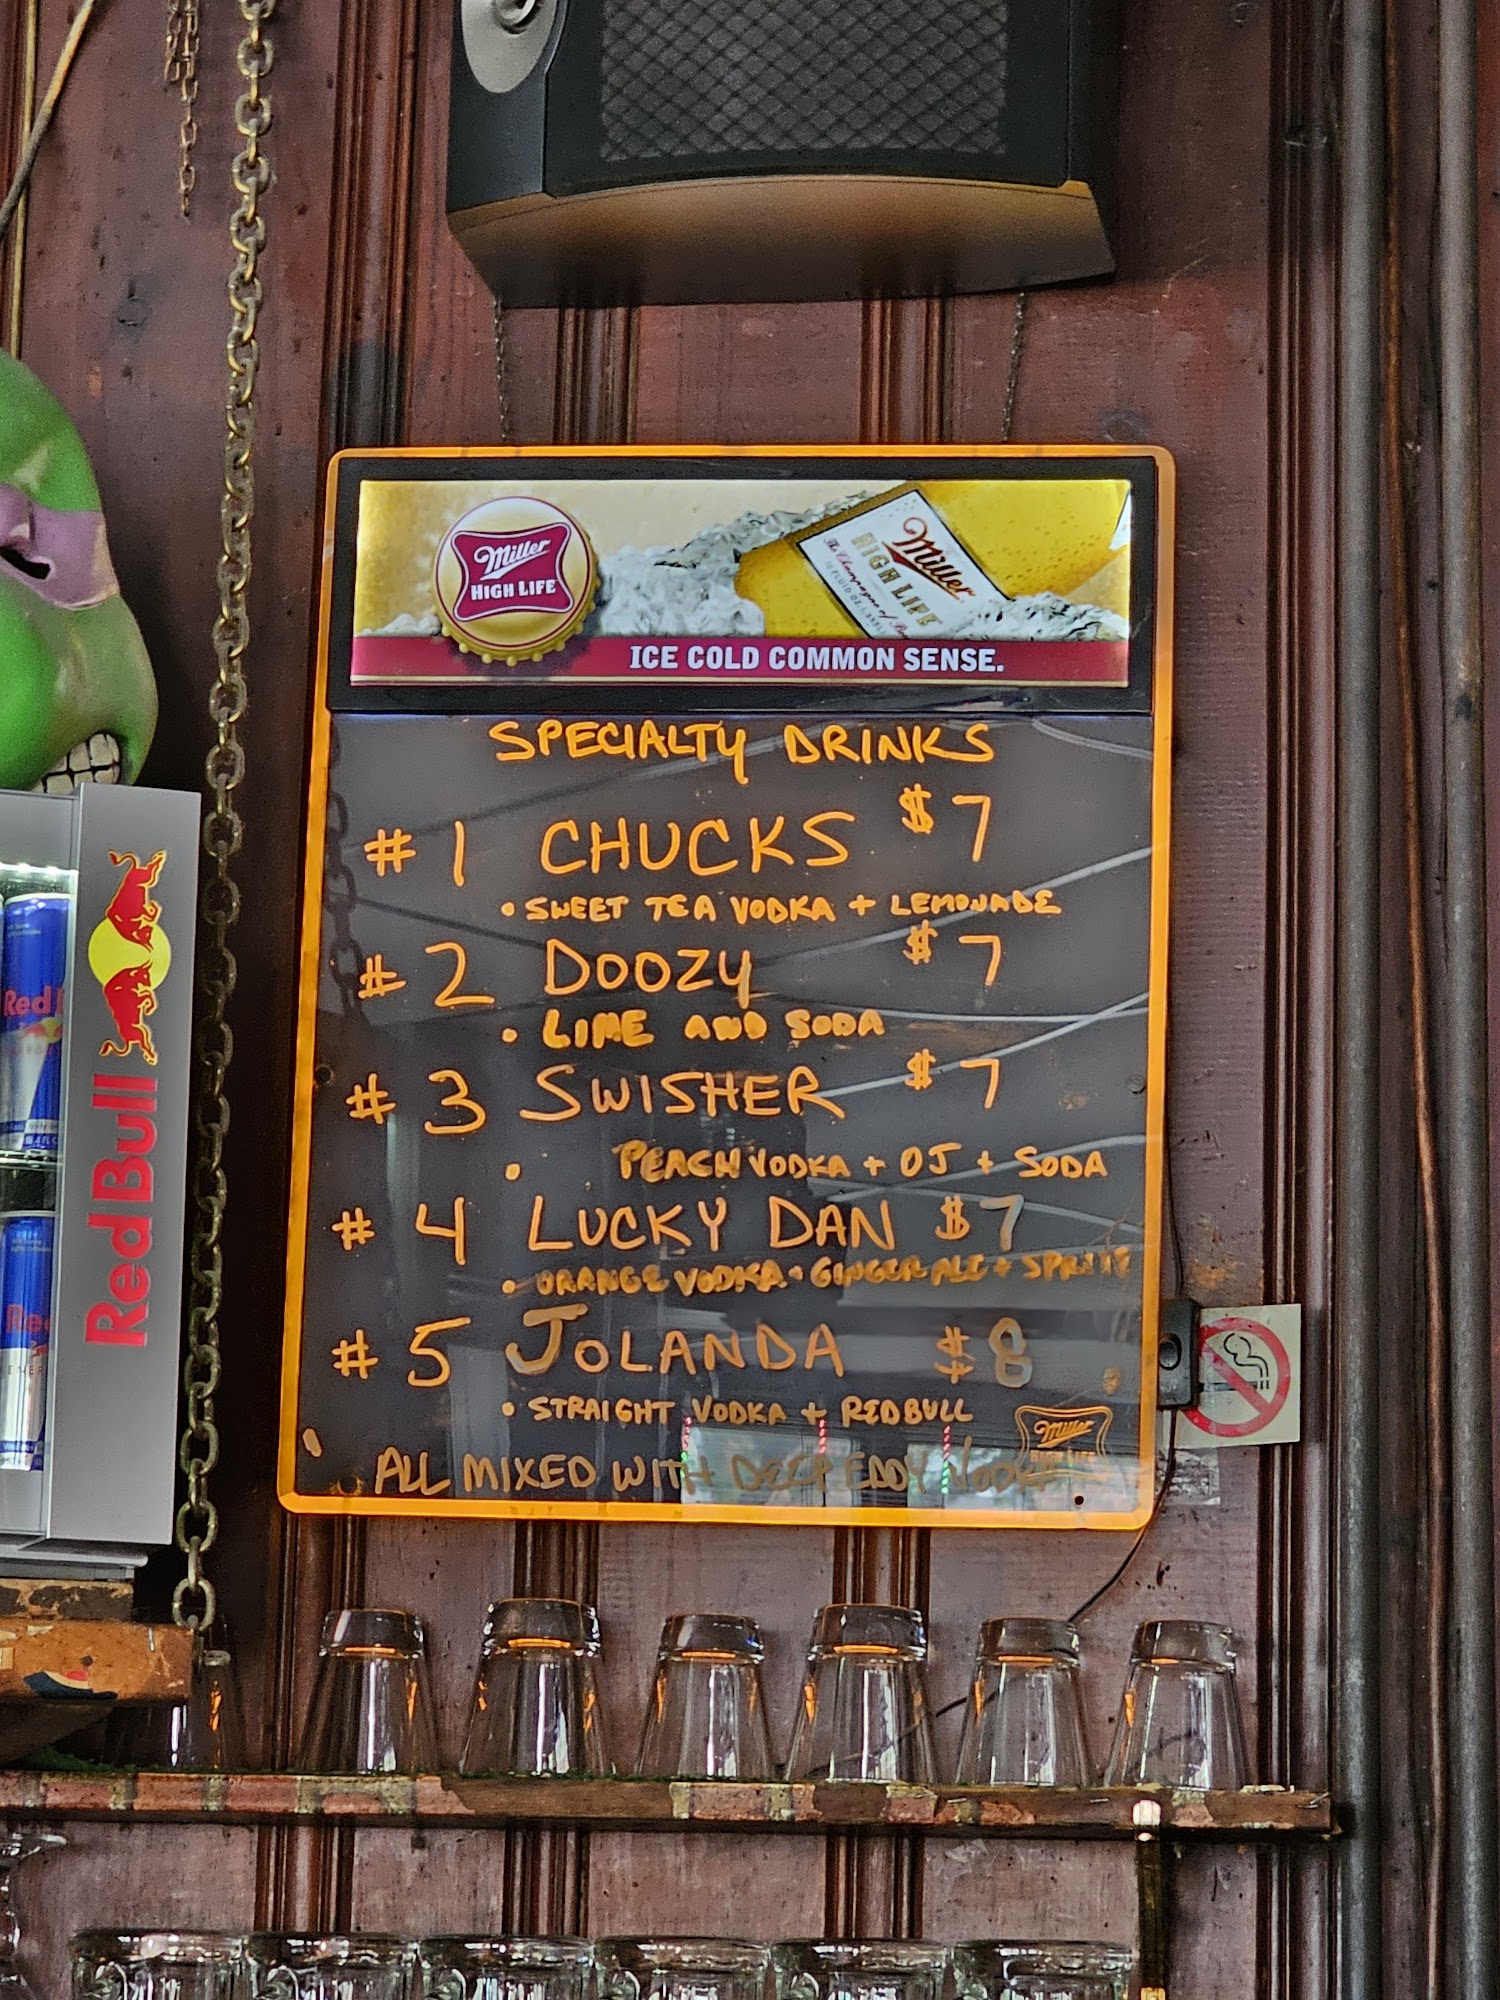 Miller
HIGH LIFE
Miller
HIGH LIFE
The Champagne of
ICE COLD COMMON SENSE.
SPECIALTY DRINKS
# 1 CHUCKS $7
• SWEET TEA VODKA + LEMONADE
# 2 DOOZY $7
• LIME AND SODA
# 3 SWISHER $7
• PEACH VODKA + OJ + SODA
# 4 LUCKY DAN $7
• ORANGE VODKA + GINGER ALE + SPRITE
# 5 JOLANDA $8
• STRAIGHT VODKA + REDBULL
ALL MIXED WITH DEEP EDDY VODKA
Miller
HIGH LIFE
Red Bull
Red
Red